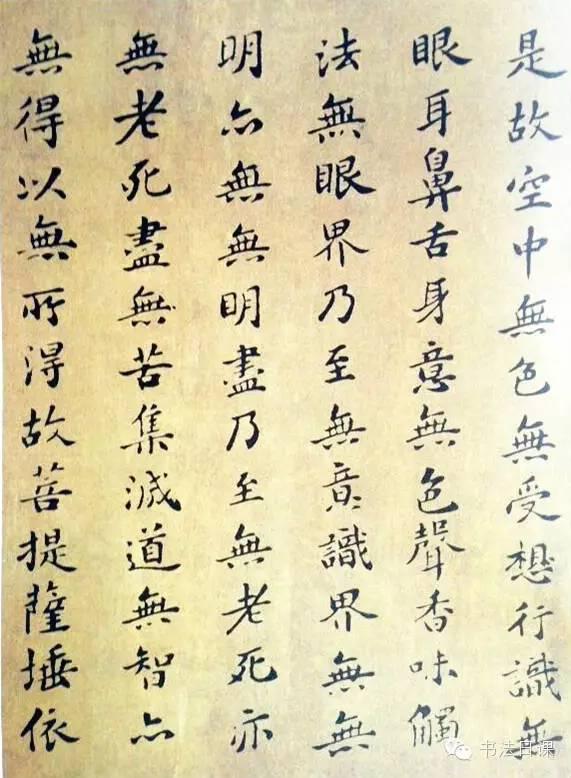 是故空中無色無受想行識無
眼耳鼻舌身意無色聲香味觸
法無眼界乃至無意識界無無
明亦無無明盡乃至無老死亦
無老死盡無苦集滅道無智亦
無得以無所得故菩提薩埵依
书法日课